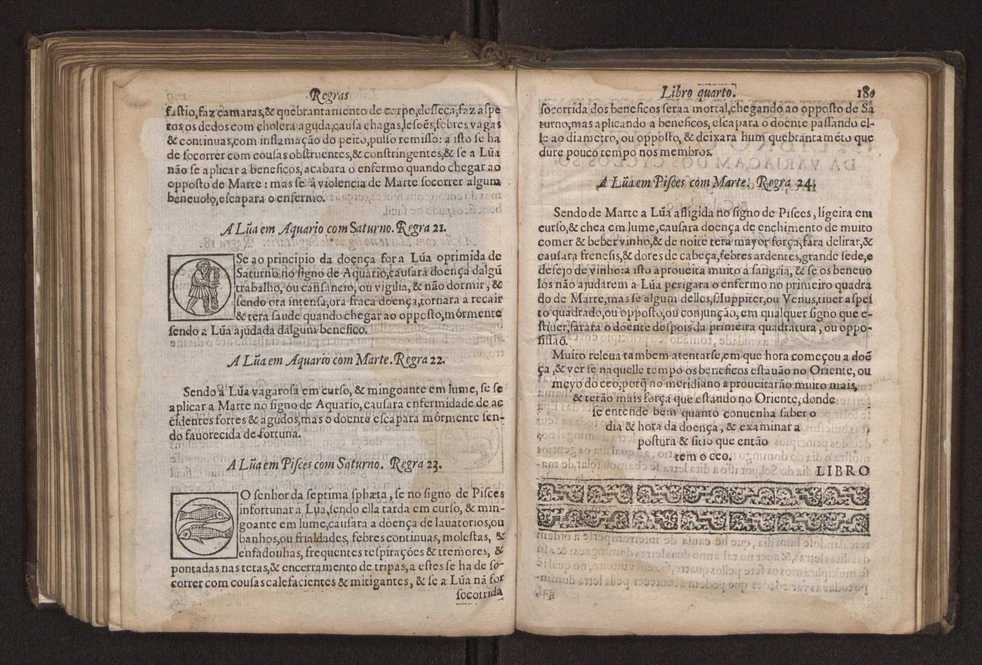 Regras
fastio, faz camaras, & quebrantamento de corpo, desseca, faz aspe
tos os dedos com cholera aguda, causa chagas, lesoẽs, febres vagas
& continuas, com inflamação do peito, pulso remisso: a isto se ha
de socorrer com cousas obstruentes, & constringentes, & se a Lũa
não se aplicar a beneficos, acabara o enfermo quando chegar ao
opposto de Marte: mas se à violencia de Marte socorrer algum
benevolo, escapara o enfermo.
A Lũa em Aquario com Saturno. Regra 21.
Se ao principio da doença for a Lũa oprimida de
Saturno no signo de Aquario, causara doença dalgũ
trabalho, ou cansancio, ou vigilia, & não dormir, &
sendo ora intensa, ora fraca doença, tornara a recair
& tera saude quando chegar ao opposto, mórmente
sendo a Lũa ajudada dalgum benefico.
A Lũa em Aquario com Marte. Regra 22.
Sendo a Lũa vagarosa em curso, & mingoante em lume, se se
aplicar a Marte no signo de Aquario, causara enfermidade de ac
cidentes fortes & agudos, mas o doente escapara mórmente sen-
do fauorecida de fortuna.
A Lũa em Pisces com Saturno. Regra 23.
O senhor da septima sphæra, se no signo de Pisces
infortunar a Lũa, sendo ella tarda em curso, & min-
goante em lume, causara a doença de lauatorios, ou
banhos, ou frialdades, febres continuas, molestas, &
enfadonhas, frequentes respirações & tremores, &
pontadas nas tetas, & encerramento de tripas, a estes se ha de so-
correr com cousas calefacientes & mitigantes, & se a Lũa nã for
socorrida
Libro quarto. 180
socorrida dos beneficos sera a mortal, chegando ao opposto de Sa
turno, mas aplicando a beneficos, escapara o doente passando el-
le ao diametro, ou opposto, & deixara hum quebrantamẽto que
dure pouco tempo nos membros.
A Lũa em Pisces com Marte. Regra 24.
Sendo de Marte a Lũa afligida no signo de Pisces, ligeira em
curso, & chea em lume, causara doença de enchimento de muito
comer & beber vinho, & de noite tera mayor força, fara delirar, &
causara frenesis, & dores de cabeça, febres ardentes, grande sede, e
desejo de vinho: a isto aproveita muito a sangria, & se os benevo
los não ajudarem a Lũa perigara o enfermo no primeiro quadra
do de Marte, mas se algum delles, s. Iuppiter, ou Venus, tiuer aspei
to quadrado, ou opposto, ou conjunção, em qualquer signo que e-
stiuer, sarara o doente despois da primeira quadratura, ou oppo-
sissão.
Muito releva tambem atentarse, em que hora começou a doẽ
ça, & ver se naquelle tempo os beneficos estauão no Oriente, ou
meyo do ceo, porq̃ no meridiano aproueitarão muito mais,
& terão mais força que estando no Oriente, donde
se entende bem quanto conuenha saber o
dia & hora da doença, & examinar a
postura & sitio que então
tem o ceo.
LIBRO